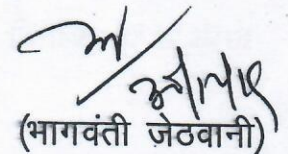 (भागवंती जेठवानी)